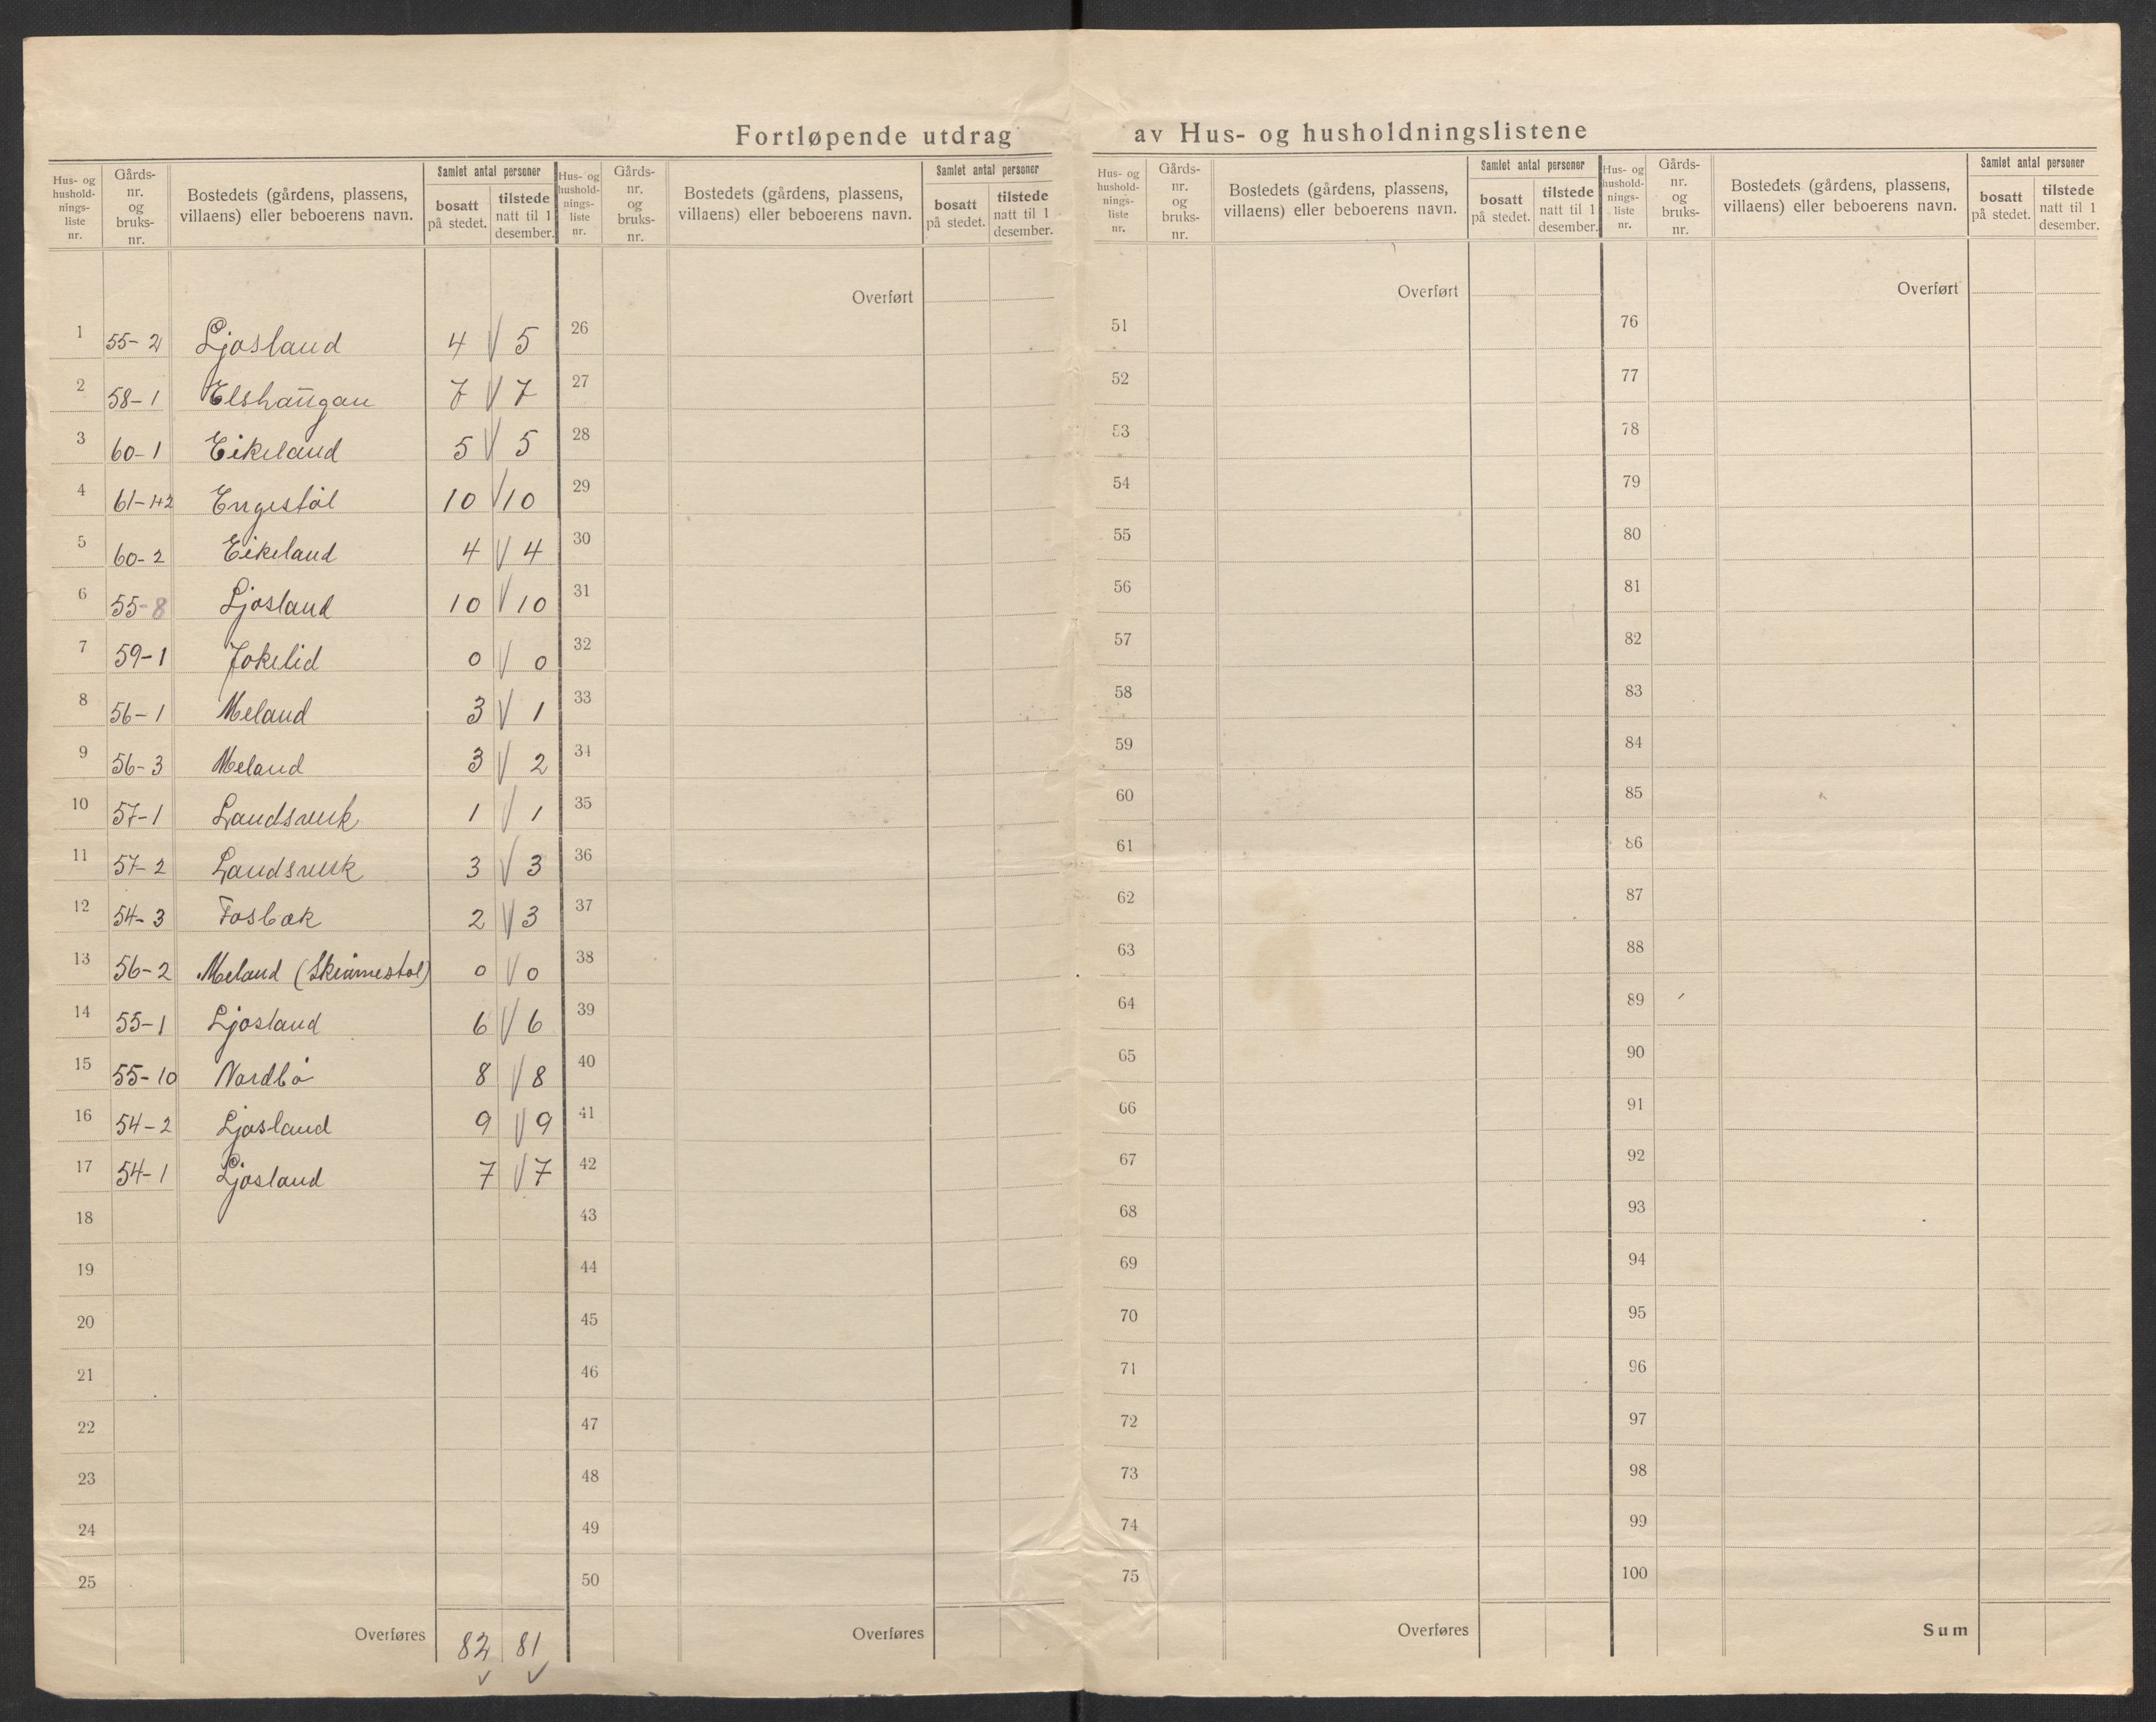 Fortløpende utdrag av Hus- og husholdningslistene
Hus- og hushold-nings-liste nr. | Gårds-nr. og bruks-nr. | Bostedets (gårdens, plassens, villaens) eller beboerens navn. | Samlet antal personer | bosatt på stedet. | tilstede natt til 1 desember.
1 55-2 Ljosland 4 5
2 58-1 Elshaugan 7 7
3 60-1 Eikeland 5 5
4 61-1+2 Engestøl 10 10
5 60-2 Eikeland 4 4
6 55-8 Ljosland 10 10
7 59-1 Jokelid 0 0
8 56-1 Meland 3 1
9 56-3 Meland 3 2
10 57-1 Landsverk 1 1
11 57-2 Landsverk 3 3
12 54-3 Fosbæk 2 3
13 56-2 Meland ( 0 0
14 55-1 Ljosland 6 6
15 55-10 Nordbø 8 8
16 54-2 Ljosland 9 9
17 54-1 Ljosland 7 7
18
19
20
21
22
23
24
25
Overføres 82 81
Hus- og hushold-nings-liste nr. | Gårds-nr. og bruks-nr. | Bostedets (gårdens, plassens, villaens) eller beboerens navn. | Samlet antal personer | bosatt på stedet. | tilstede natt til 1 desember.
Overført
26
27
28
29
30
31
32
33
34
35
36
37
38
39
40
41
42
43
44
45
46
47
48
49
50
Overføres
Hus- og hushold-nings-liste nr. | Gårds-nr. og bruks-nr. | Bostedets (gårdens, plassens, villaens) eller beboerens navn. | Samlet antal personer | bosatt på stedet. | tilstede natt til 1 desember.
Overført
51
52
53
54
55
56
57
58
59
60
61
62
63
64
65
66
67
68
69
70
71
72
73
74
75
Overføres
Hus- og hushold-nings-liste nr. | Gårds-nr. og bruks-nr. | Bostedets (gårdens, plassens, villaens) eller beboerens navn. | Samlet antal personer | bosatt på stedet. | tilstede natt til 1 desember.
Overført
76
77
78
79
80
81
82
83
84
85
86
87
88
89
90
91
92
93
94
95
96
97
98
99
100
Sum